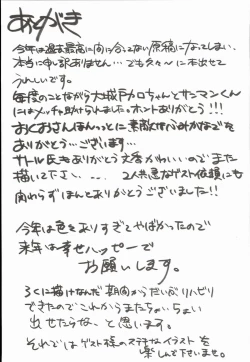 あとがき
今年は過去最高に間に合ってない原稿になってしまい、
本当に申し訳ありません…でも久々〜に本出せて
うれしいです。
毎度のことながら大城戸カロちゃんとサンマンくん
にはメッチャ助けられました。ホントありがとう!!!
おくおさんほんっとに素敵な
ありがとう…ございます…
サトル氏もありがとう文香かわいいのでまた
描いて下さい、、、2人共急なゲスト依頼にも
関わらずほんとありがとうございました!!
今年は色々ありすぎてやばかったので
来年は幸せハッピーで
お願いします。
ろくに描けなんだ期間からだいぶリハビリ
できたのでこれからまたちょいちょい
出せたらなー、と思います。
それではゲスト様のステキなイラスト を
楽しんで下さいませ。